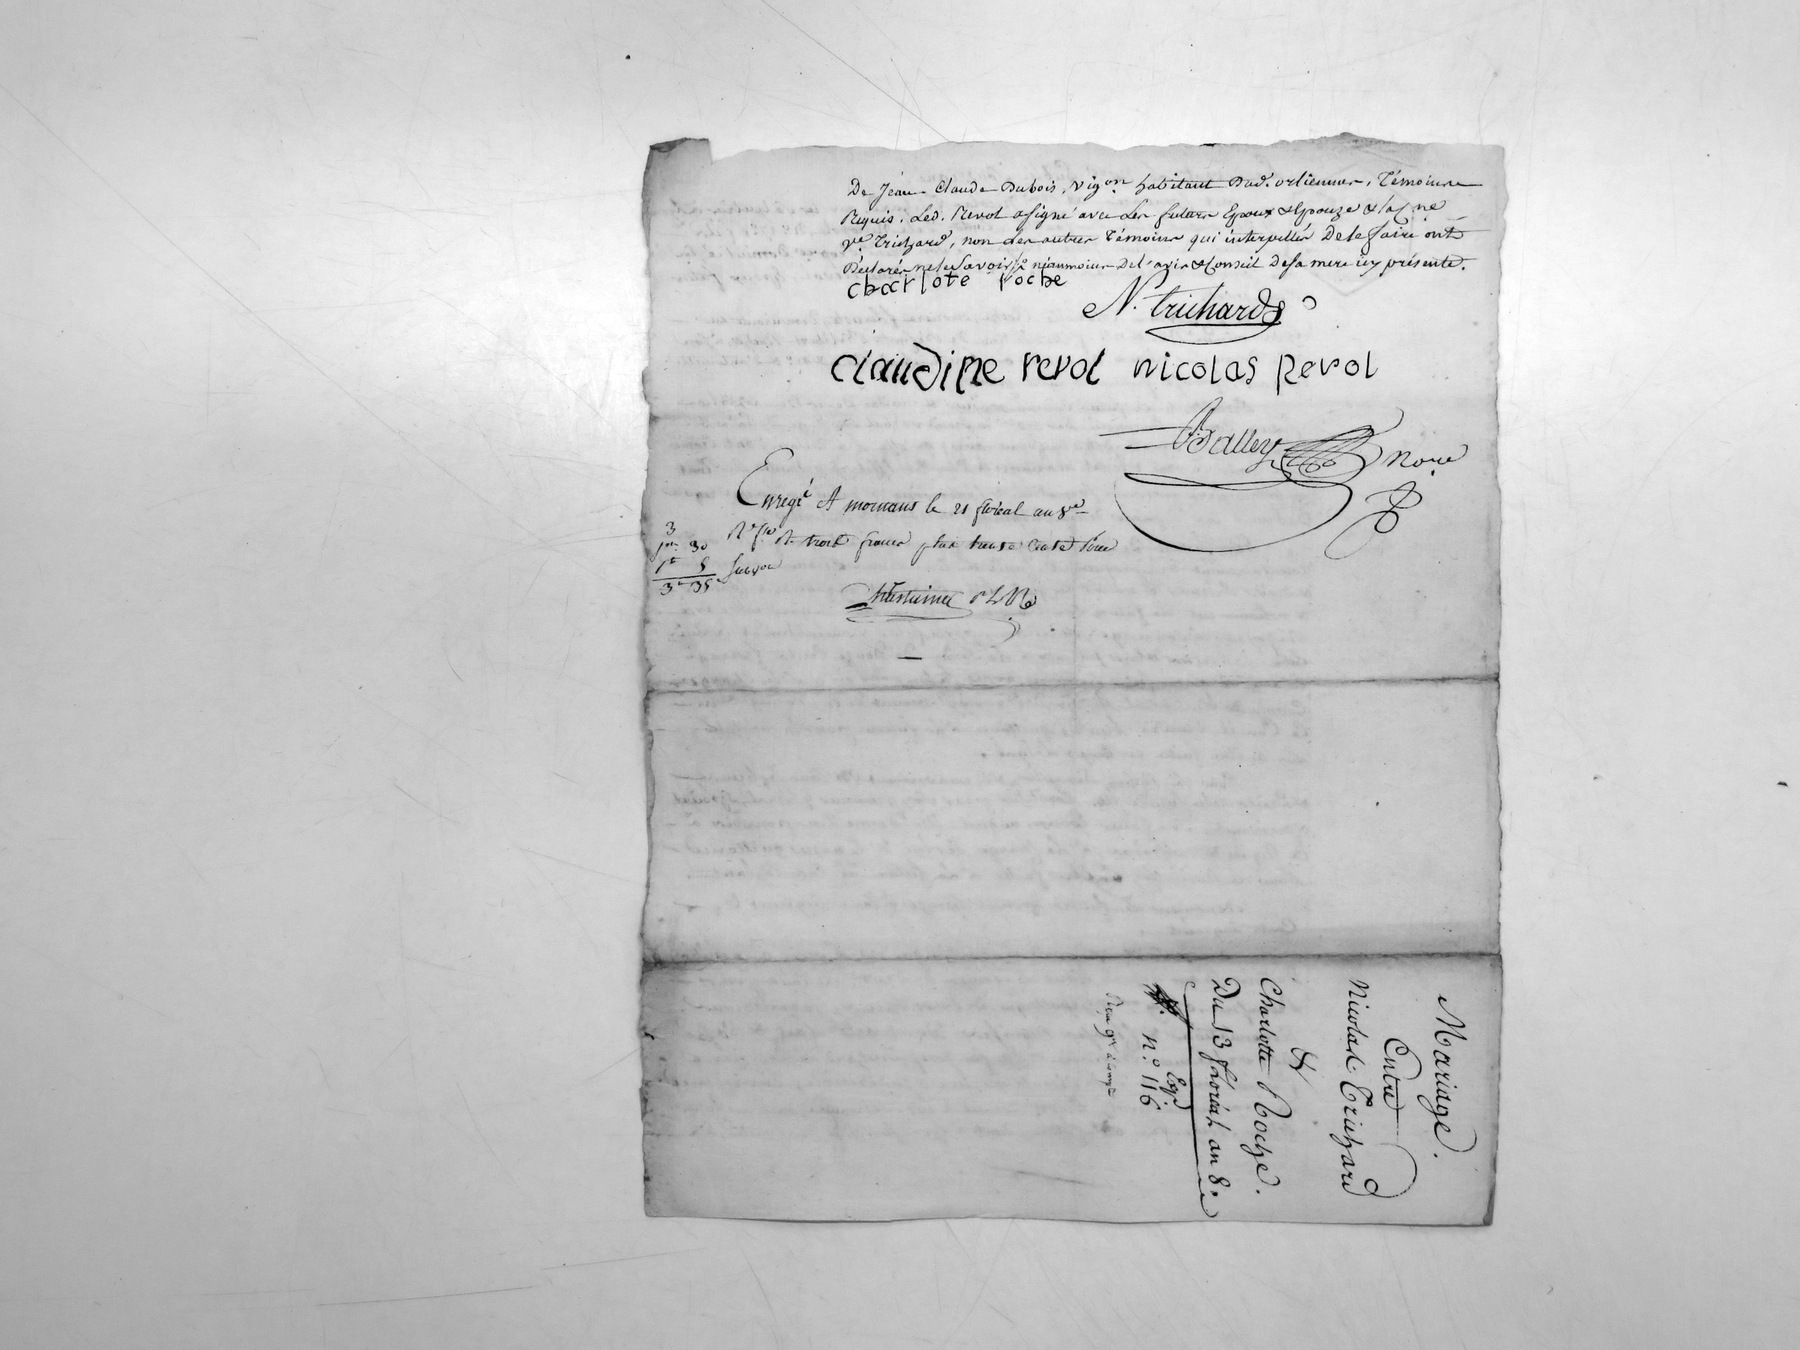 De Jean Claude Dubois, vigon habitant Dud. orlienner, Témoinre
Requis. Led. Revol a signé avec Les futurs Epoux & Epouze & la Cne
ve Trichard, non Les autres Témoins qui interpellés De le faire ont
Déclarés ne le Savoir néanmoins De l'avis & Conseil De sa mere icy présente.
charlote roche
N. trichard
claudine revol nicolas Revol
Balley Nore
Enregé A mornant le 21 floréal an 8e
3
30 Rs trois francs plus trente Cents
5 Subvon
3 35
Mariage.
Entre
Nicolas Trichard
&
Charlotte Roche.
Du 13 floréal an 8.e
Expé
n.° 116